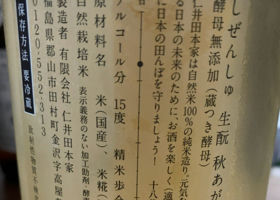 しぜんしゅ 生酛 秋あが
酵母無添加(蔵つき酵母)
仁井田本家は自然米100%の純米造り。元気
る日本の未来のために、お酒を楽しく(適
に日本の田んぼを守りましょう! 十八
アルコール分 15度 精米歩合
原材料名 米(国産)、米糀(
自然栽培米 表示義務のない加工助剤、酵
製造者 有限会社 仁井田本家
福島県郡山市田村町金沢字高屋
0120-552-313
保存方法 要冷蔵
放射性物質